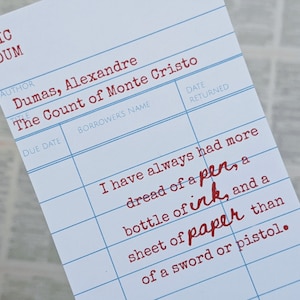 IC
DUM
AUTHOR
Dumas, Alexandre
The Count of Monte Cristo
DUE DATE BORROWERS NAME DATE RETURNED
I have always had more
dread of a pen, a
bottle of ink, and a
sheet of paper than
of a sword or pistol.